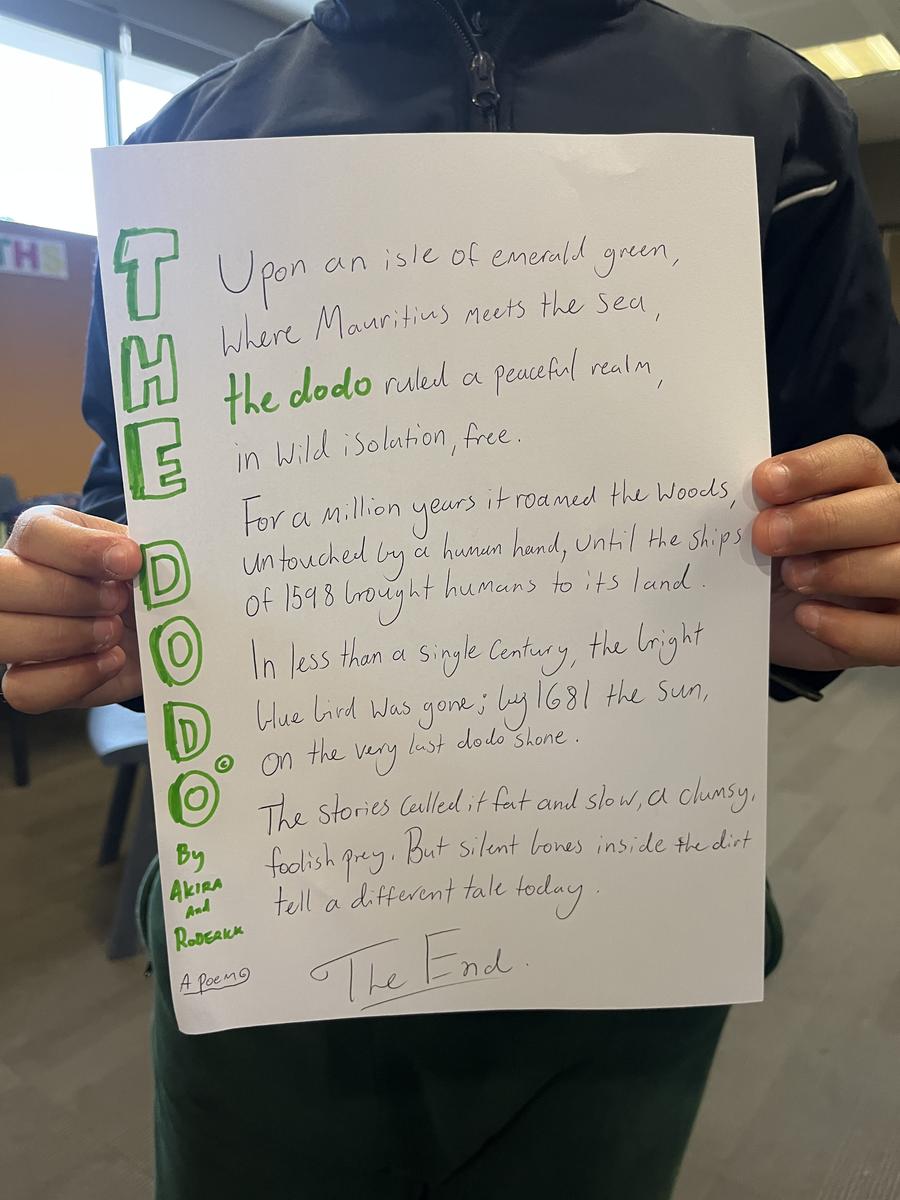 THS
THE DODO ©
By
AKIRA
And
RODERICK
A Poem
Upon an isle of emerald green,
Where Mauritius meets the sea,
the dodo ruled a peaceful realm,
in wild isolation, free.
For a million years it roamed the woods,
untouched by a human hand, until the ships
of 1598 brought humans to its land.
In less than a single century, the bright
blue bird was gone; by 1681 the sun,
on the very last dodo shone.
The stories called it fat and slow, a clumsy,
foolish prey. But silent bones inside the dirt
tell a different tale today.
The End.